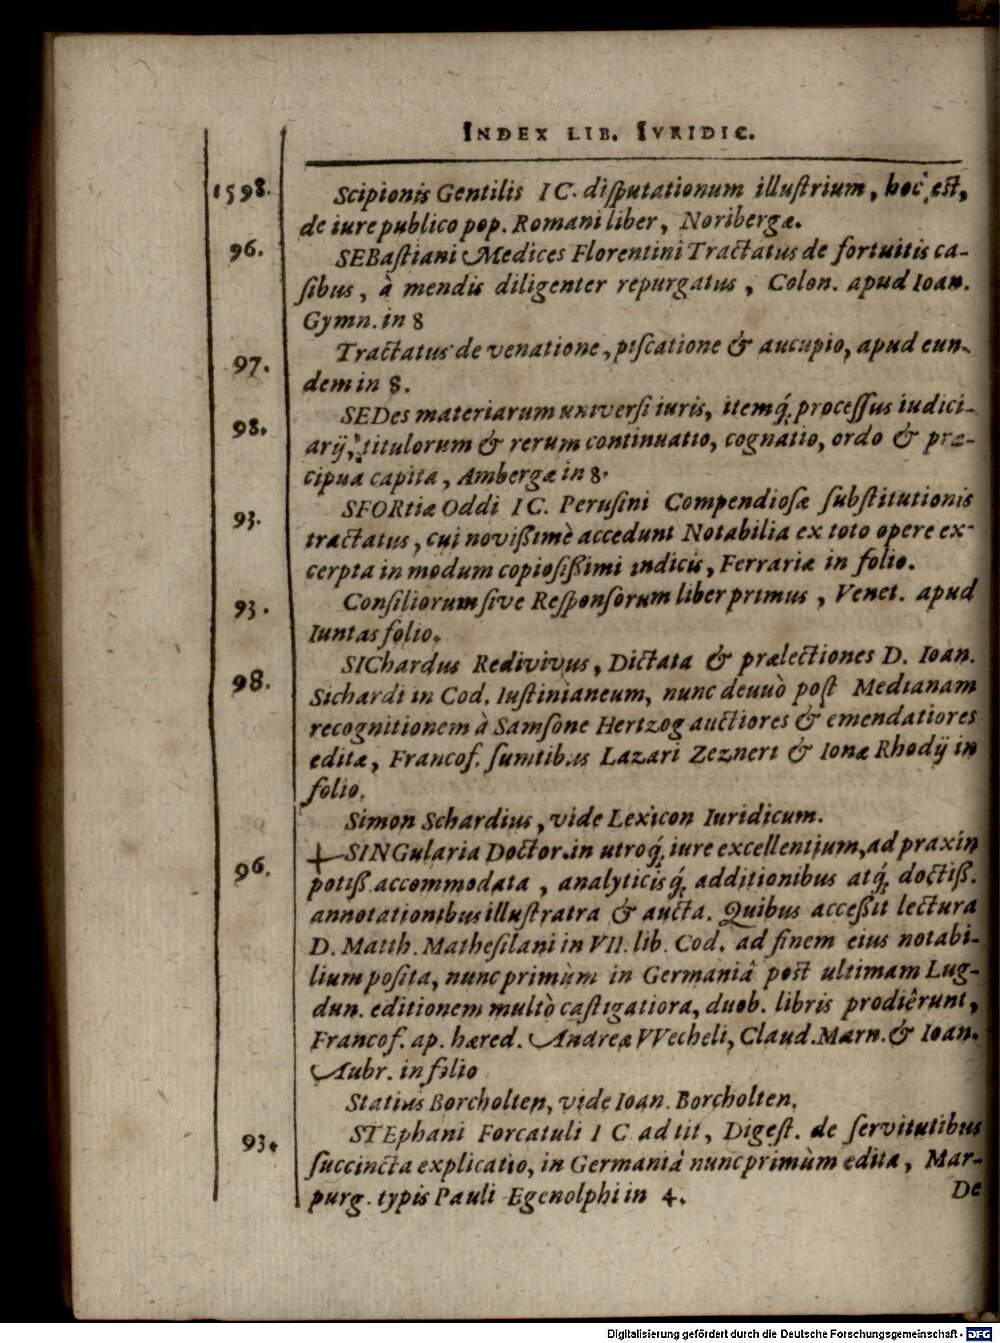 INDEX LIB. IVRIDIC.
1598. Scipionis Gentilis IC. disputationum illustrium, hoc est,
de iure publico pop. Romani liber, Noribergæ.
96. SEBastiani Medices Florentini Tractatus de fortuitis ca-
sibus, à mendis diligenter repurgatus, Colon. apud Ioan.
Gymn. in 8
97. Tractatus de venatione, piscatione & aucupio, apud eun-
dem in 8.
98. SEDes materiarum universi iuris, itemq́; processus iudici-
arij, titulorum & rerum continuatio, cognatio, ordo & præ-
cipua capita, Ambergæ in 8.
93. SFORtiæ Oddi IC. Perusini Compendiosæ substitutionis
tractatus, cui novißimè accedunt Notabilia ex toto opere ex-
cerpta in modum copiosißimi indicis, Ferrariæ in folio.
93. Consiliorum sive Responsorum liber primus, Venet. apud
Iuntas folio.
98. SIChardus Redivivus, Dictata & prælectiones D. Ioan.
Sichardi in Cod. Iustinianeum, nunc deuuò post Medianam
recognitionem à Samsone Hertzog auctiores & emendatiores
editæ, Francof. sumtibus Lazari Zezneri & Ionæ Rhodij in
folio.
Simon Schardius, vide Lexicon Iuridicum.
96. SINGularia Doctor. in utroq́; iure excellentium, ad praxin
potiß. accommodata, analyticisq́; additionibus atq́; doctiß.
annotationibus illustratra & aucta. Quibus acceßit lectura
D. Matth. Mathesilani in VII. lib. Cod. ad finem eius notabi-
lium posita, nunc primùm in Germaniâ post ultimam Lug-
dun. editionem multò castigatiora, duob. libris prodiêrunt,
Francof. ap. hæred. Andreæ VVecheli, Claud. Marn. & Ioan.
Aubr. in folio
Statius Borcholten, vide Ioan. Borcholten.
93. STEphani Forcatuli IC ad tit, Digest. de servitutibus
succincta explicatio, in Germaniâ nunc primùm edita, Mar-
purg. typis Pauli Egenolphi in 4.
De
Digitalisierung gefördert durch die Deutsche Forschungsgemeinschaft - DFG